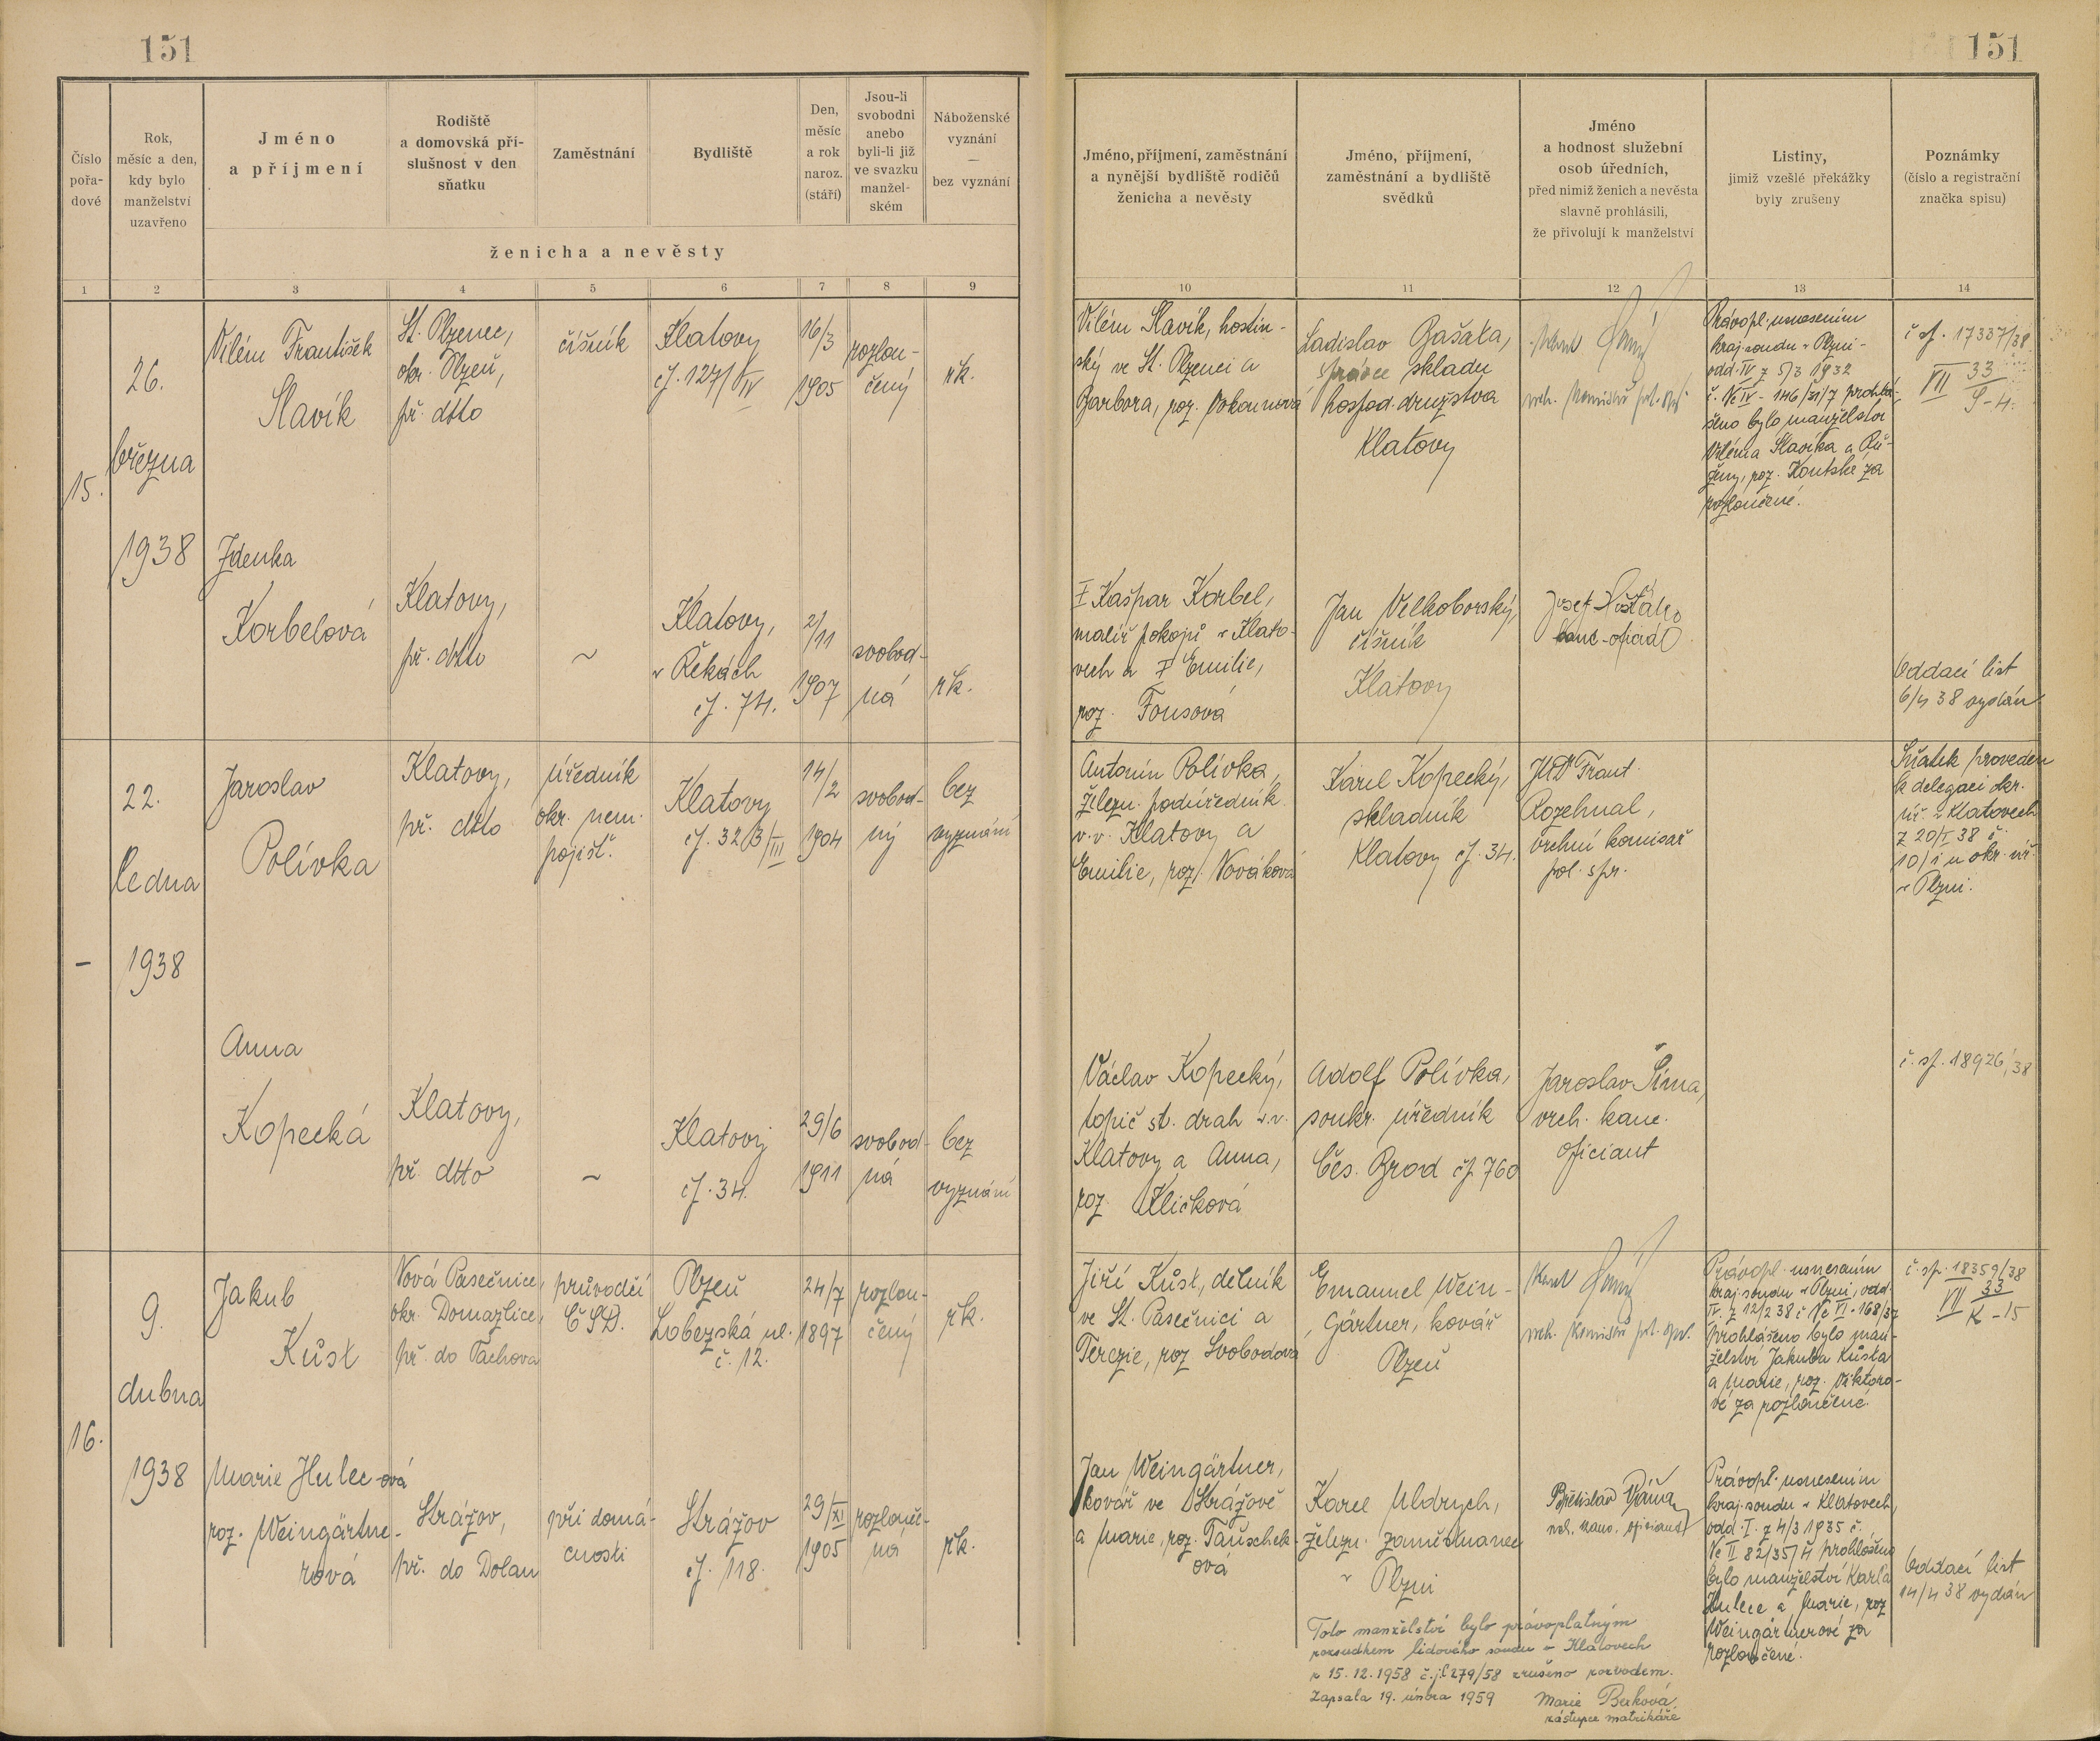 151
151
Číslo
pořa-
dové
Rok,
měsíc a den,
kdy bylo
manželství
uzavřeno
Jméno
a příjmení
Rodiště
a domovská pří-
slušnost v den
sňatku
Zaměstnání
Bydliště
Den,
měsíc
a rok
naroz.
(stáří)
Jsou-li
svobodni
anebo
byli-li již
ve svazku
manžel-
ském
Náboženské
vyznání
—
bez vyznání
ženicha a nevěsty
Jméno, příjmení, zaměstnání
a nynější bydliště rodičů
ženicha a nevěsty
Jméno, příjmení,
zaměstnání a bydliště
svědků
Jméno
a hodnost služební
osob úředních,
před nimiž ženich a nevěsta
slavně prohlásili,
že přivolují k manželství
Listiny,
jimiž vzešlé překážky
byly zrušeny
Poznámky
(číslo a registrační
značka spisu)
1 2 3 4 5 6 7 8 9 10 11 12 13 14
15.
26.
března
1938
Vilém František
Slavík
St. Plzenec,
okr. Plzeň,
př. dtto
číšník
Klatovy
čj. 127/IV
16/3
1905
rozlou-
čený
řk.
Vilém Slavík, hostin-
ský ve St. Plzenci a
Barbora, roz.
Ladislav Bašata,
správce skladu
hospod. družstva
Klatovy
vrch. komisař pol. spr.
Právopl. usnesením
kraj. soudu v Plzni
odd. IV z 5/3 1932
č. Nc IV - 146/31/7 prohlá-
šeno bylo manželství
Viléma Slavíka a Rů-
ženy, roz. Koutské za
rozloučené.
č sp. 17337/38
VII 33
9-4.
Zdenka
Korbelová
Klatovy,
př. dtto
~
Klatovy,
v Řekách
čj. 74.
2/11
1907
svobod-
ná
řk.
Kašpar Korbel,
malíř pokojů v Klato-
vech a Emilie,
roz. Fousová
Jan Velkoborský,
číšník
Klatovy
Josef
kanc. oficiál
Oddací list
6/4 38 vydán
–
22.
ledna
1938
Jaroslav
Polívka
Klatovy,
př. dtto
úředník
okr. nem.
pojišť.
Klatovy
čj. 323/III
14/2
1904
svobod-
ný
bez
vyznání
Antonín Polívka,
železn. podúředník
v.v. Klatovy a
Emilie, roz. Nováková
Karel Kopecký,
skladník
Klatovy čj. 34.
JUDr Frant.
Rozehnal,
vrchní komisař
pol. spr.
Sňatek proveden
k delegaci okr.
úř. v Klatovech
z 20/I 38 č.
10/1 u okr. úř.
v Plzni.
Anna
Kopecká
Klatovy,
př. dtto
~
Klatovy
čj. 34.
29/6
1911
svobod-
ná
bez
vyznání
Václav Kopecký,
topič st. drah v.v.
Klatovy a Anna,
roz. Kličková
Adolf Polívka,
soukr. úředník
Čes. Brod čj. 760
Jaroslav Šíma,
vrch. kanc.
oficiant
č. sp. 18926/38
16.
9.
dubna
1938
Jakub
Kůst
Nová Pasečnice,
okr. Domažlice,
př. do Tachova
průvodčí
ČSD.
Plzeň
Lobezská ul.
č. 12.
24/7
1897
rozlou-
čený
řk.
Jiří Kůst, dělník
ve St. Pasečnici a
Terezie, roz Svobodova
Emanuel Wein-
gärtner, kovář
Plzeň
vrch. komisař pol. spr.
Právopl. usnesením
kraj. soudu v Plzni, odd.
IV. z 12/2 38 č Nc VI-168/37
prohlášeno bylo man-
želství Jakuba Kůsta
a Marie, roz. Viktoro-
vé za rozloučené.
č. sp. 18359/38
VII 33
K-15
Marie Hulec-ová
roz. Weingärtne-
rová
Strážov,
př. do Dolan
při domá-
cnosti
Strážov
čj. 118.
29/XI
1905
rozlouče-
ná
řk.
Jan Weingärtner,
kovář ve Strážově
a Marie, roz. Tauschek-
ová
Karel Uldrych,
železn. zaměstnanec
v Plzni
Břetislav
vrch. kanc. oficiant
Právopl. usnesením
kraj. soudu v Klatovech,
odd. I. z 4/3 1935 č.
Nc II 82/35/4 prohlášeno
bylo manželství Karla
Hulece a Marie, roz
Weingärtnerové za
rozloučené.
Oddací list
14/4 38 vydán
Toto manželství bylo právoplatným
rozsudkem lidového soudu v Klatovech
z 15. 12. 1958 č.j. C 279/58 zrušeno rozvodem.
Zapsala 19. února 1959 Marie
zástupce matrikáře